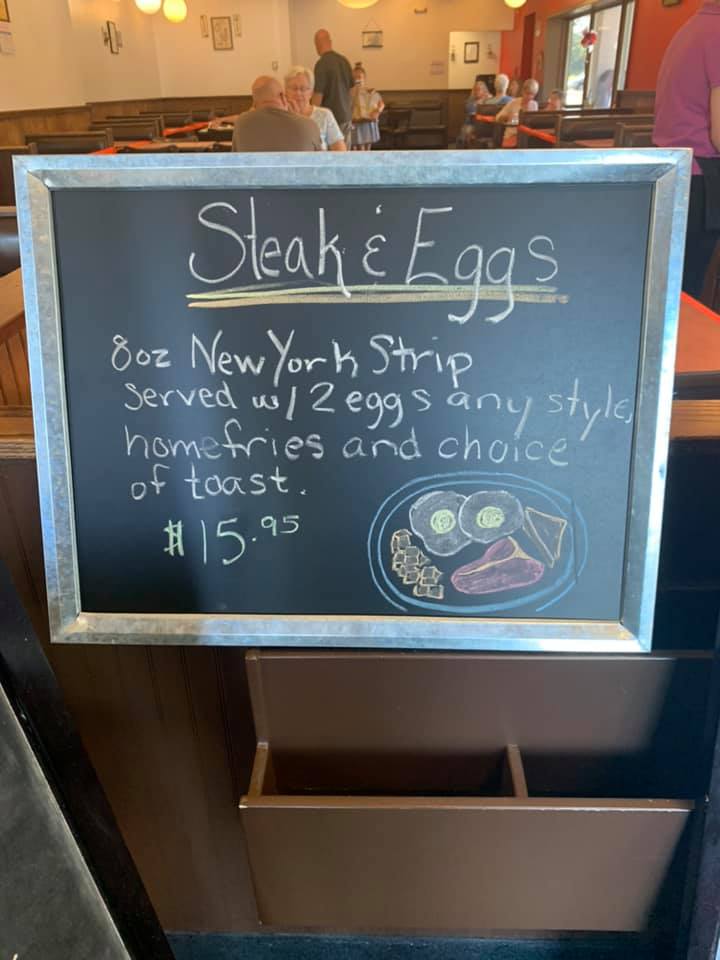 Steak & Eggs
8oz New York Strip
Served w/ 2 eggs any style,
homefries and choice
of toast.
$15.95